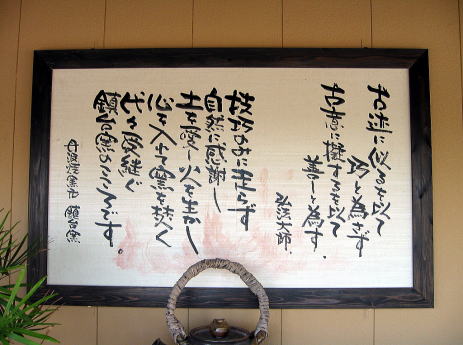 古迹に似るを以て
巧と為さず
古意に擬するを以て
善しと為す。
弘法大師
技巧のみに走らず
自然に感謝し
土を愛し火を生かし
心を入れて窯を焚く
代々受継ぐ
鎮山窯のこころです。
丹波焼窯元 鎮山窯